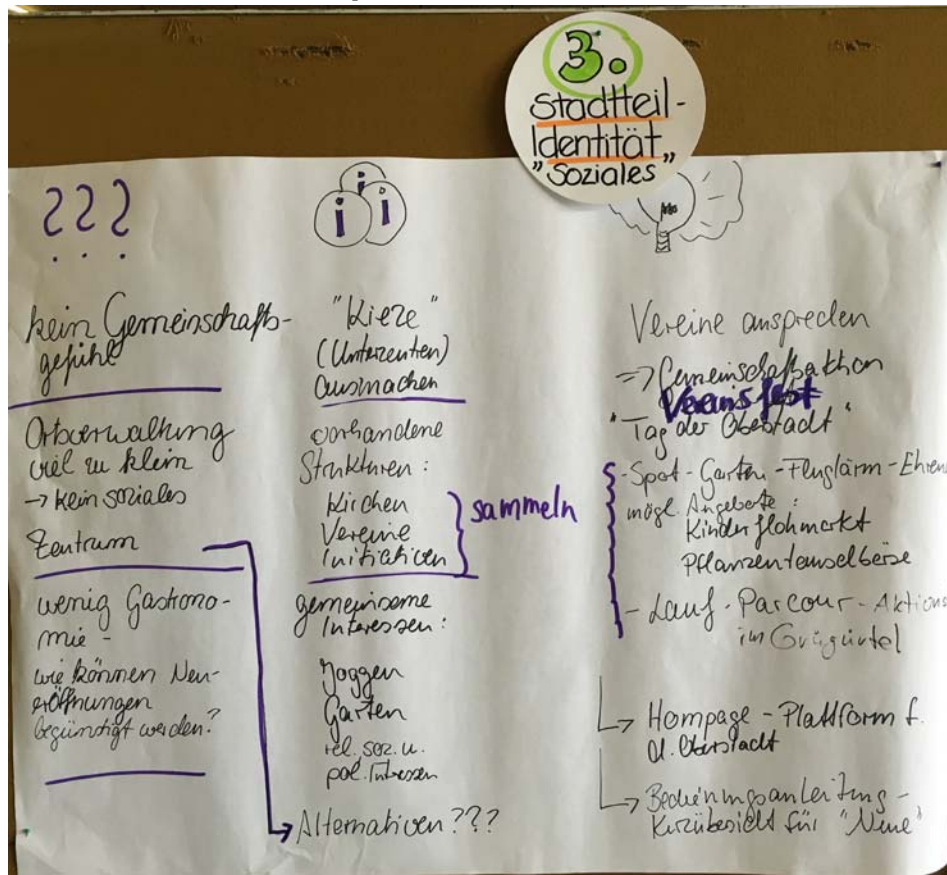 3.
Stadtteil-
Identität
"Soziales"
???
kein Gemeinschafts-
gefühl
Ortsverwaltung
viel zu klein
→ kein soziales
Zentrum
wenig Gastrono-
mie -
wie können Neu-
eröffnungen
begünstigt werden?
i i i
"Kieze"
(Unterzentren)
ausmachen
vorhandene
Strukturen:
Kirchen
Vereine
Initiativen
sammeln
gemeinsame
Interessen:
Joggen
Garten
rel. soz. u.
pol. Interessen
Alternativen???
Vereine ansprechen
=> Gemeinschaftsaktion
Vereinsfest
"Tag der Oberstadt"
- Spot - Garten - Fluglärm - Ehren
mögl. Angebote:
Kinderflohmarkt
Pflanzentauschbörse
- Lauf - Parcour - Aktions
im Grüngürtel
→ Hompage - Plattform f.
d. Oberstadt
→ Bedienungsanleitung -
Kurzübersicht für "Neue"